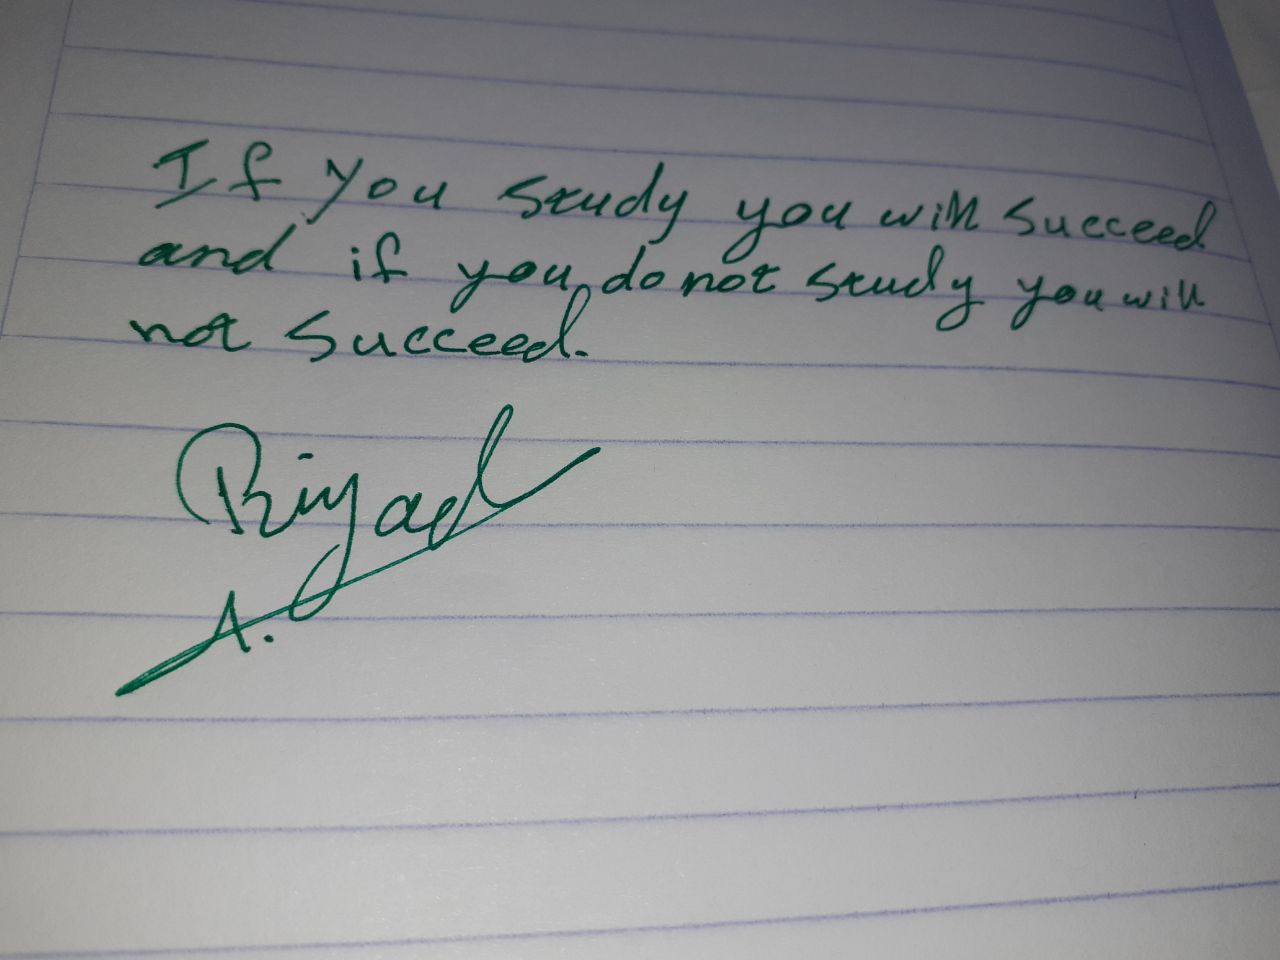 If you study you will succeed
and if you do not study you will
not succeed.
Riyad
A.